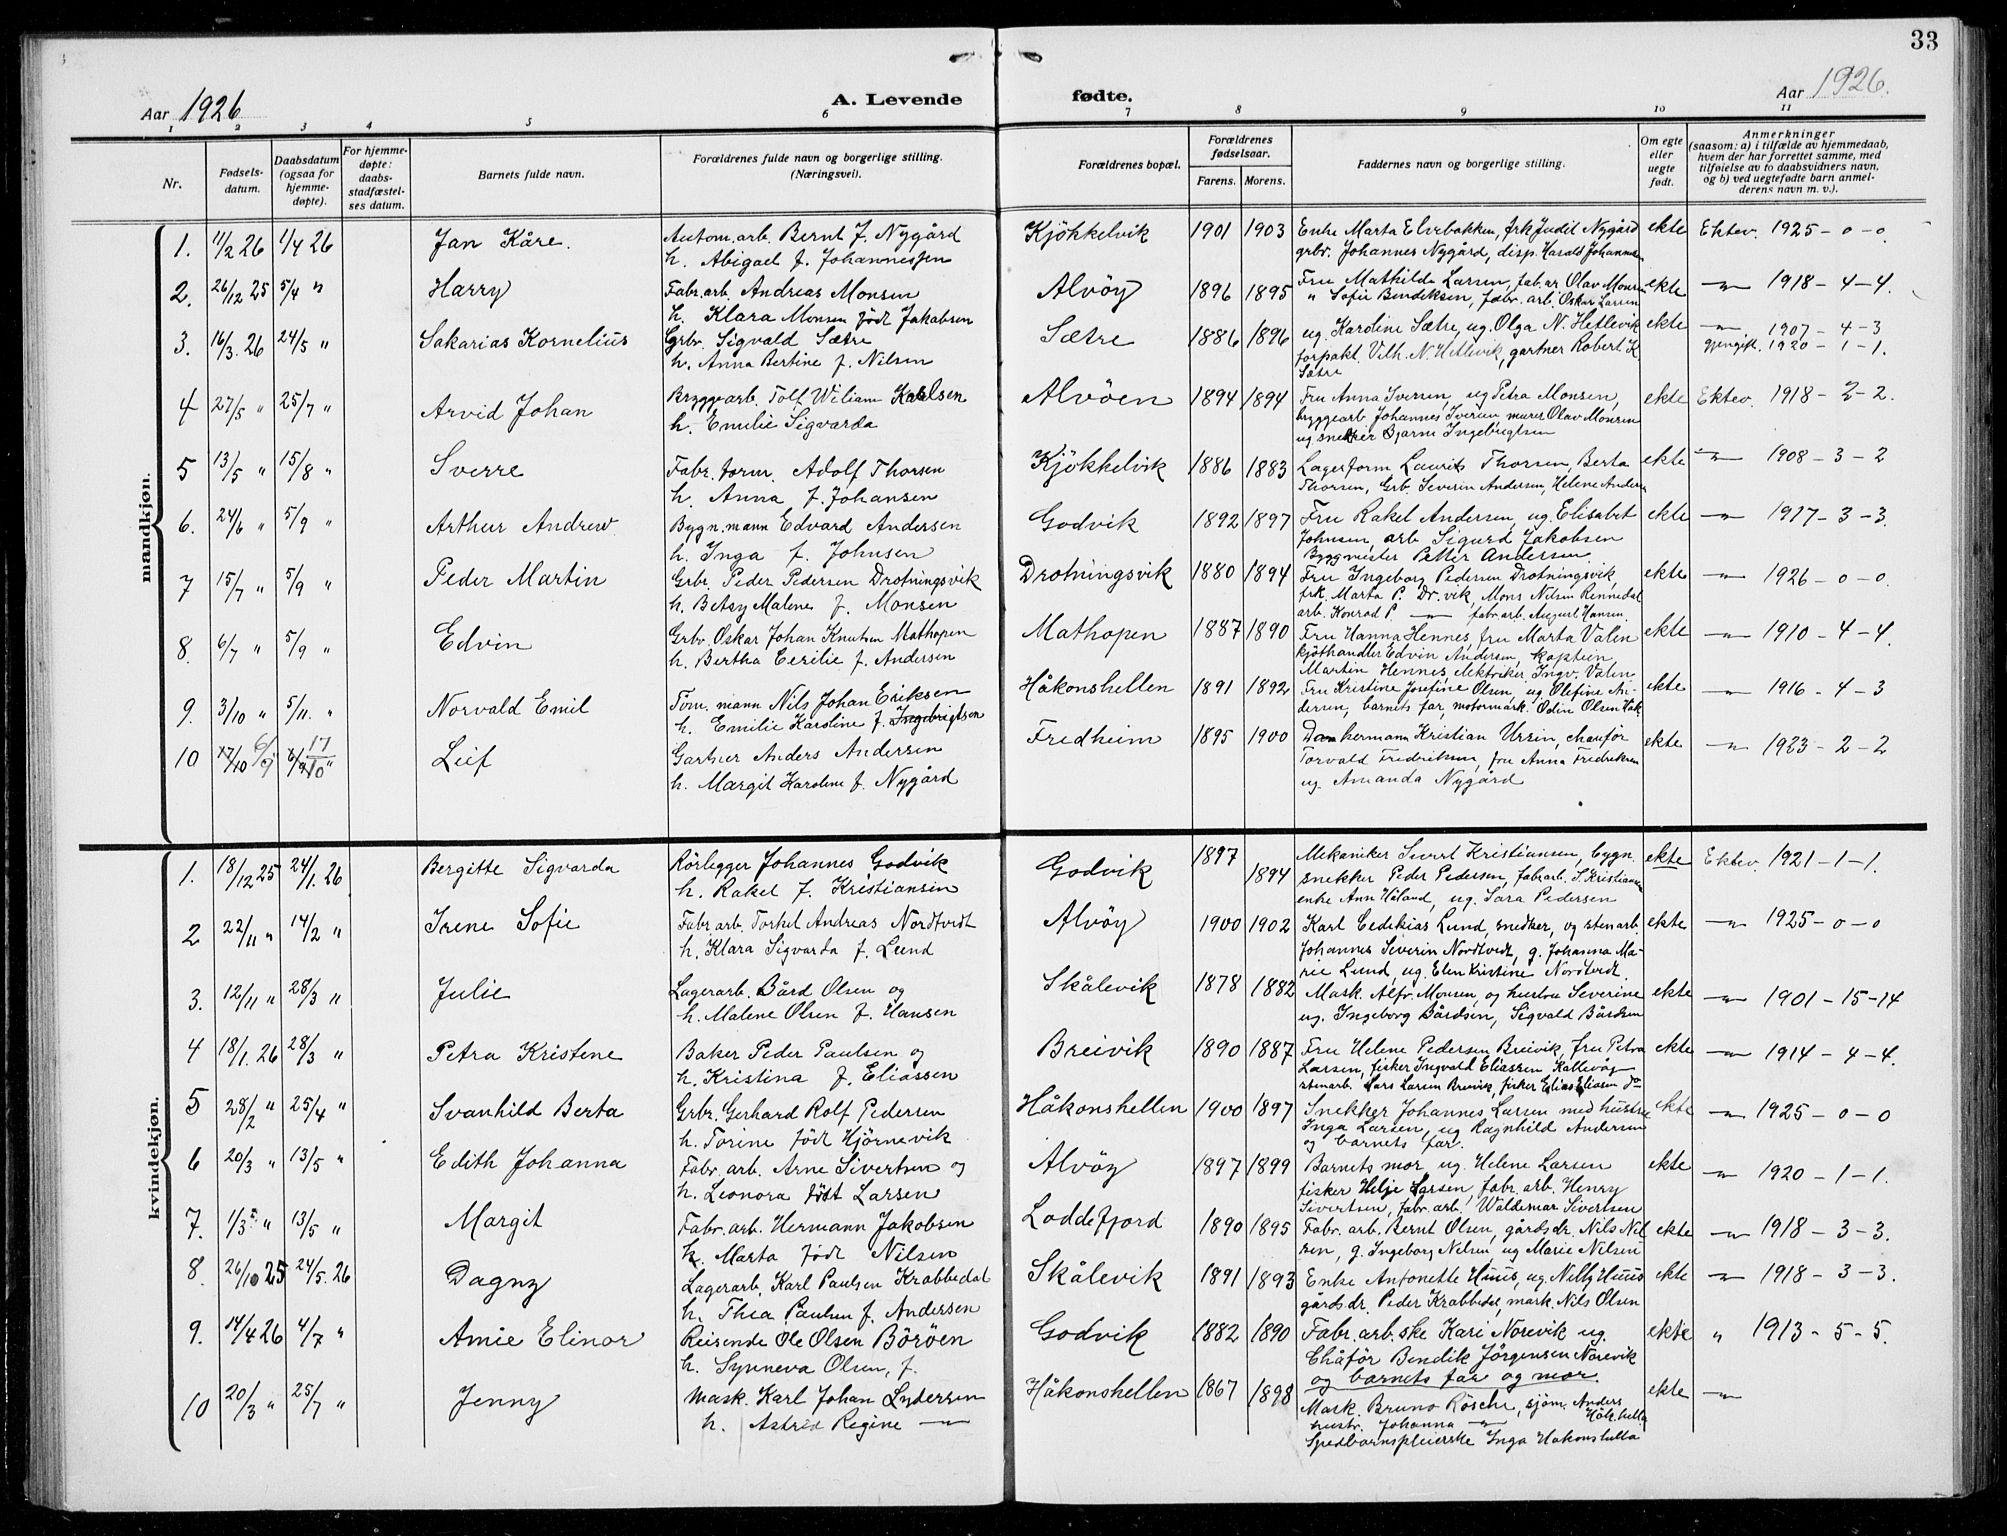 33
Aar 1926
A. Levende
fødte.
Aar 1926.
1 2 3 4 5 6 7 8 9 10 11
Nr.
Fødselsdatum.
Daabsdatum (ogsaa for hjemmedøpte).
For hjemmedøpte: daabsstadfæstelses datum.
Barnets fulde navn.
Forældrenes fulde navn og borgerlige stilling. (Næringsvei).
Forældrenes bopæl.
Forældrenes fødselsaar.
Farens. Morens.
Faddernes navn og borgerlige stilling.
Om egte eller uegte født.
Anmerkninger (saasom: a) i tilfælde av hjemmedaab, hvem der har forrettet samme, med tilføielse av to daabsvidners navn, og b) ved uegtefødte barn anmelderens navn m. v.).
mandkjøn.
1. 11/2 26 1/4 26 Jan Kåre. Autom. arb. Bernt J. Nygård Kjökkelvik 1901 1903 Enke Marta Elvebakken, frk Judit Nygård ekte Ektev. 1925 - 0 - 0.
h. Abigael f. Johannessen grbr. Johannes Nygård, disp. Harald Johannsen
2. 26/12 25 5/4 " Harry Fabr. arb. Andreas Monsen Alvöy 1896 1895 Fru Mathilde Larsen, fab. ar Olav Monsen ekte -"- 1918 - 4 - 4.
h. Klara Monsen født Jakobsen " Sofie Bendiksen, fabr. arb. Oskar Larsen
3. 16/3. 26 24/5 " Sakarias Kornelius Grbr. Sigvald Sætre Sætre 1886 1896 ug. Karoline Sætre, ug. Olga N. Hetlevik ekte -"- 1907 - 4 - 3
h. Anna Bertine f. Nilsen forpakt. Vilh. N. Hetlevik, gartner Robert K gjengift. 1920 - 1 - 1.
Sætre
4 27/5 " 25/7 " Arvid Johan Bryggearb. Tolf Wiliam Karlsen Alvöen 1894 1894 Fru Anna Iversen, ug Petra Monsen, ekte Ektev. 1918 - 2 - 2.
h. Emilie Sigvarda byggearb. Johannes Iversen murer Olav Monsen
ug. snekker Bjarne Ingebrigtsen
5 13/5 " 15/8 " Sverre Fabr. form. Adolf Thorsen Kjökkelvik 1886 1883 Lagerform Laurits Thorsen, Berta ekte -"- 1908 - 3 - 2
h. Anna f. Johansen Thorsen, Grb. Severin Andersen, Helene Anders
6. 24/6 " 5/9 " Arthur Andrew Bygn. mann Edvard Andersen Godvik 1892 1897 Fru Rakel Andersen, ug. Elisabet ekte -"- 1917 - 3 - 3.
h. Inga f. Johnsen Johnsen, arb Sigurd Jakobsen
Byggmester Petter Andersen
7 15/7 " 5/9 " Peder Martin Grbr. Peder Pedersen Drotningsvik Drotningsvik 1880 1894 Fru Ingeborg Pedersen Drotningsvik, ekte -"- 1926 - 0 - 0.
h. Betsy Malene f. Monsen frk. Marta P. Dr. vik, Mons Nilsen Rennedal
arb. Konrad P. -"- fabr. arb. August Hansen
8. 6/7 " 5/9 " Edvin Grbr. Oskar Johan Knutsen Mathopen Mathopen 1887 1890 Fru Hanna Hennes, fru Marta Valen ekte -"- 1910 - 4 - 4
h. Bertha Cecilie f. Andersen kjöthandler Edvin Andersen, kaptein
Martin Hennes, elektriker Ingv. Valen
9. 3/10 " 5/11. " Norvald Emil Töm. mann Nils Johan Eriksen Håkonshellen 1891 1892 Fru Kristine Josefine Olsen, ug Olefine An- ekte -"- 1916 - 4 - 3
h. Emilie Karoline f. Ingebrigtsen dersen, barnets far, motormask. Odin Olsen Håk.
10 17/10 6/9 6/9 17/10 " Leif Gartner Anders Andersen Fredheim 1895 1900 Dan hermann Kristian Ursin, chauför ekte -"- 1923 - 2 - 2
h. Margit Karoline f. Nygård Torvald Fredriksen, fru Anna Fredriksen
ug. Amanda Nygård
kvindekjøn.
1. 18/12 25 24/1. 26 Bergitte Sigvarda Rörlegger Johannes Godvik Godvik 1897 1894 Mekaniker Severt Kristiansen, bygn. ekte Ektev. 1921 - 1 - 1.
h. Rakel f. Kristiansen snekker Peder Pedersen, fabr arb. S. Kristiansen
enke Ann Håland, ug. Sara Pedersen
2 22/11 " 14/2 " Irene Sofie Fabr arb. Torkel Andreas Nordtvedt Alvöy 1900 1902 Karl Cedekias Lund, snedker, og stenarb. ekte -"- 1925 - 0 - 0
h. Klara Sigvarda f. Lund Johannes Severin Nordtvedt, g. Johanna Ma-
rie Lund, ug. Elen Kristine Nordtvedt.
3. 12/11 " 28/3 " Julie Lagerarb. Bård Olsen og Skålevik 1878 1882 Mask. Alfr. Monsen, og hustru Severine ekte -"- 1901 - 15 - 14
h. Malene Olsen f. Hansen ug. Ingeborg Bårdsen, Sigvald Bårdsen
4 18/1. 26 28/3 " Petra Kristene Baker Peder Paulsen og Breivik 1890 1887 Fru Helene Pedersen Breivik, fru Petra ekte -"- 1914 - 4 - 4.
h. Kristina f. Eliassen Larsen, fisker Ingvald Eliassen Kallevåg
stenarb. Lars Larsen Breivik, fisker Elias Eliasen do
5 28/2 " 25/4 " Svanhild Berta Grbr. Gerhard Rolf Pedersen Håkonshellen 1900 1897 Snekker Johannes Larsen med hustru ekte -"- 1925 - 0 - 0
h. Torine född Hjörnevik Inga Larsen, ug Ragnhild Andersen
og barnets far.
6 20/3 " 13/5 " Edith Johanna Fabr. arb. Arne Sivertsen og Alvöy 1897 1899 Barnets mor, ug. Helene Larsen ekte -"- 1920 - 1 - 1.
h. Leonora född Larsen fisker Helje Larsen, fabr. arb. Henry
Sivertsen, fabr. arb. Waldemar Sivertsen
7. 1/3 " 13/5 " Margit Fabr. arb. Hermann Jakobsen Loddefjord 1890 1895 Fabr. arb. Bernt Olsen, gårdsdr. Nils Nil ekte -"- 1918 - 3 - 3.
h. Marta född Nilsen sen, g. Ingeborg Nilsen ug Marie Nilsen
8. 26/10 25 24/5. 26 Dagny Lagerarb. Karl Paulsen Krabbedal Skålevik 1891 1893 Enke Antonette Huus, ug. Nelly Huus ekte -"- 1918 - 3 - 3.
h. Thea Paulsen f. Andersen gårdsdr. Peder Krabbedal, mask. Nils Olsen
9. 14/4 26 4/7 " Amie Elinor Reisende Ole Olsen Böröen Godvik 1882 1890 Fabr. arb. ske Kari Norevik ug. ekte " 1913 - 5 - 5.
h. Synneva Olsen, f. Chåför Bendik Jörgensen Norevik
og barnets far og mor.
10 20/3 " 25/7 " Jenny Mask. Karl Johan Lydersen Håkonshellen 1867 1898 Mask. Bruno Rösche, sjöm. Anders Håk.hella ekte -"-
h. Astrid Regine -"- hustr. Johanna -"-
Spedbarnspleierske Inga Håkonshella